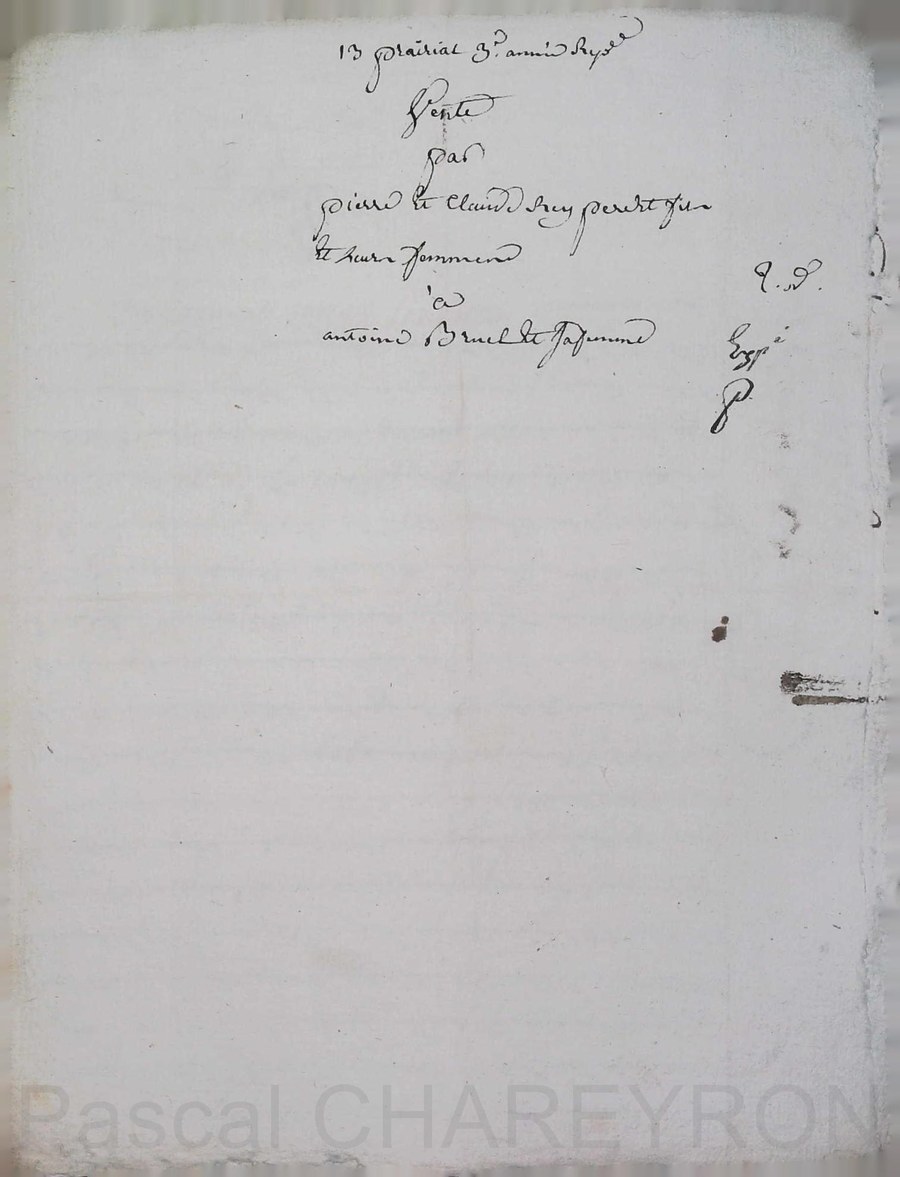 13 prairial 3.e année Rep.e
Vente
par
pierre et Claude Rey pere et fils
et leurs femmes
à
antoine Bruel et sa femme
Exp.é
Pascal CHAREYRON